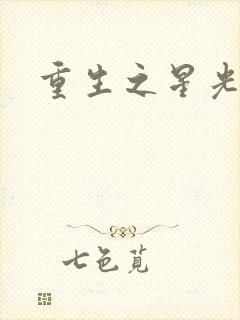 重生之星光
七色苋